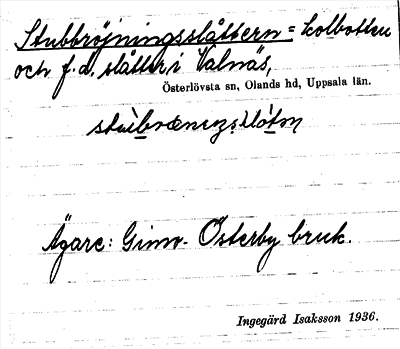 Stubbröjningsslåttern = kolbotten
och f.d. slåtter i Valnäs,
Österlövsta sn, Olands hd, Uppsala län.
Ägare: Gimo-Österby bruk.
Ingegärd Isaksson 1936.